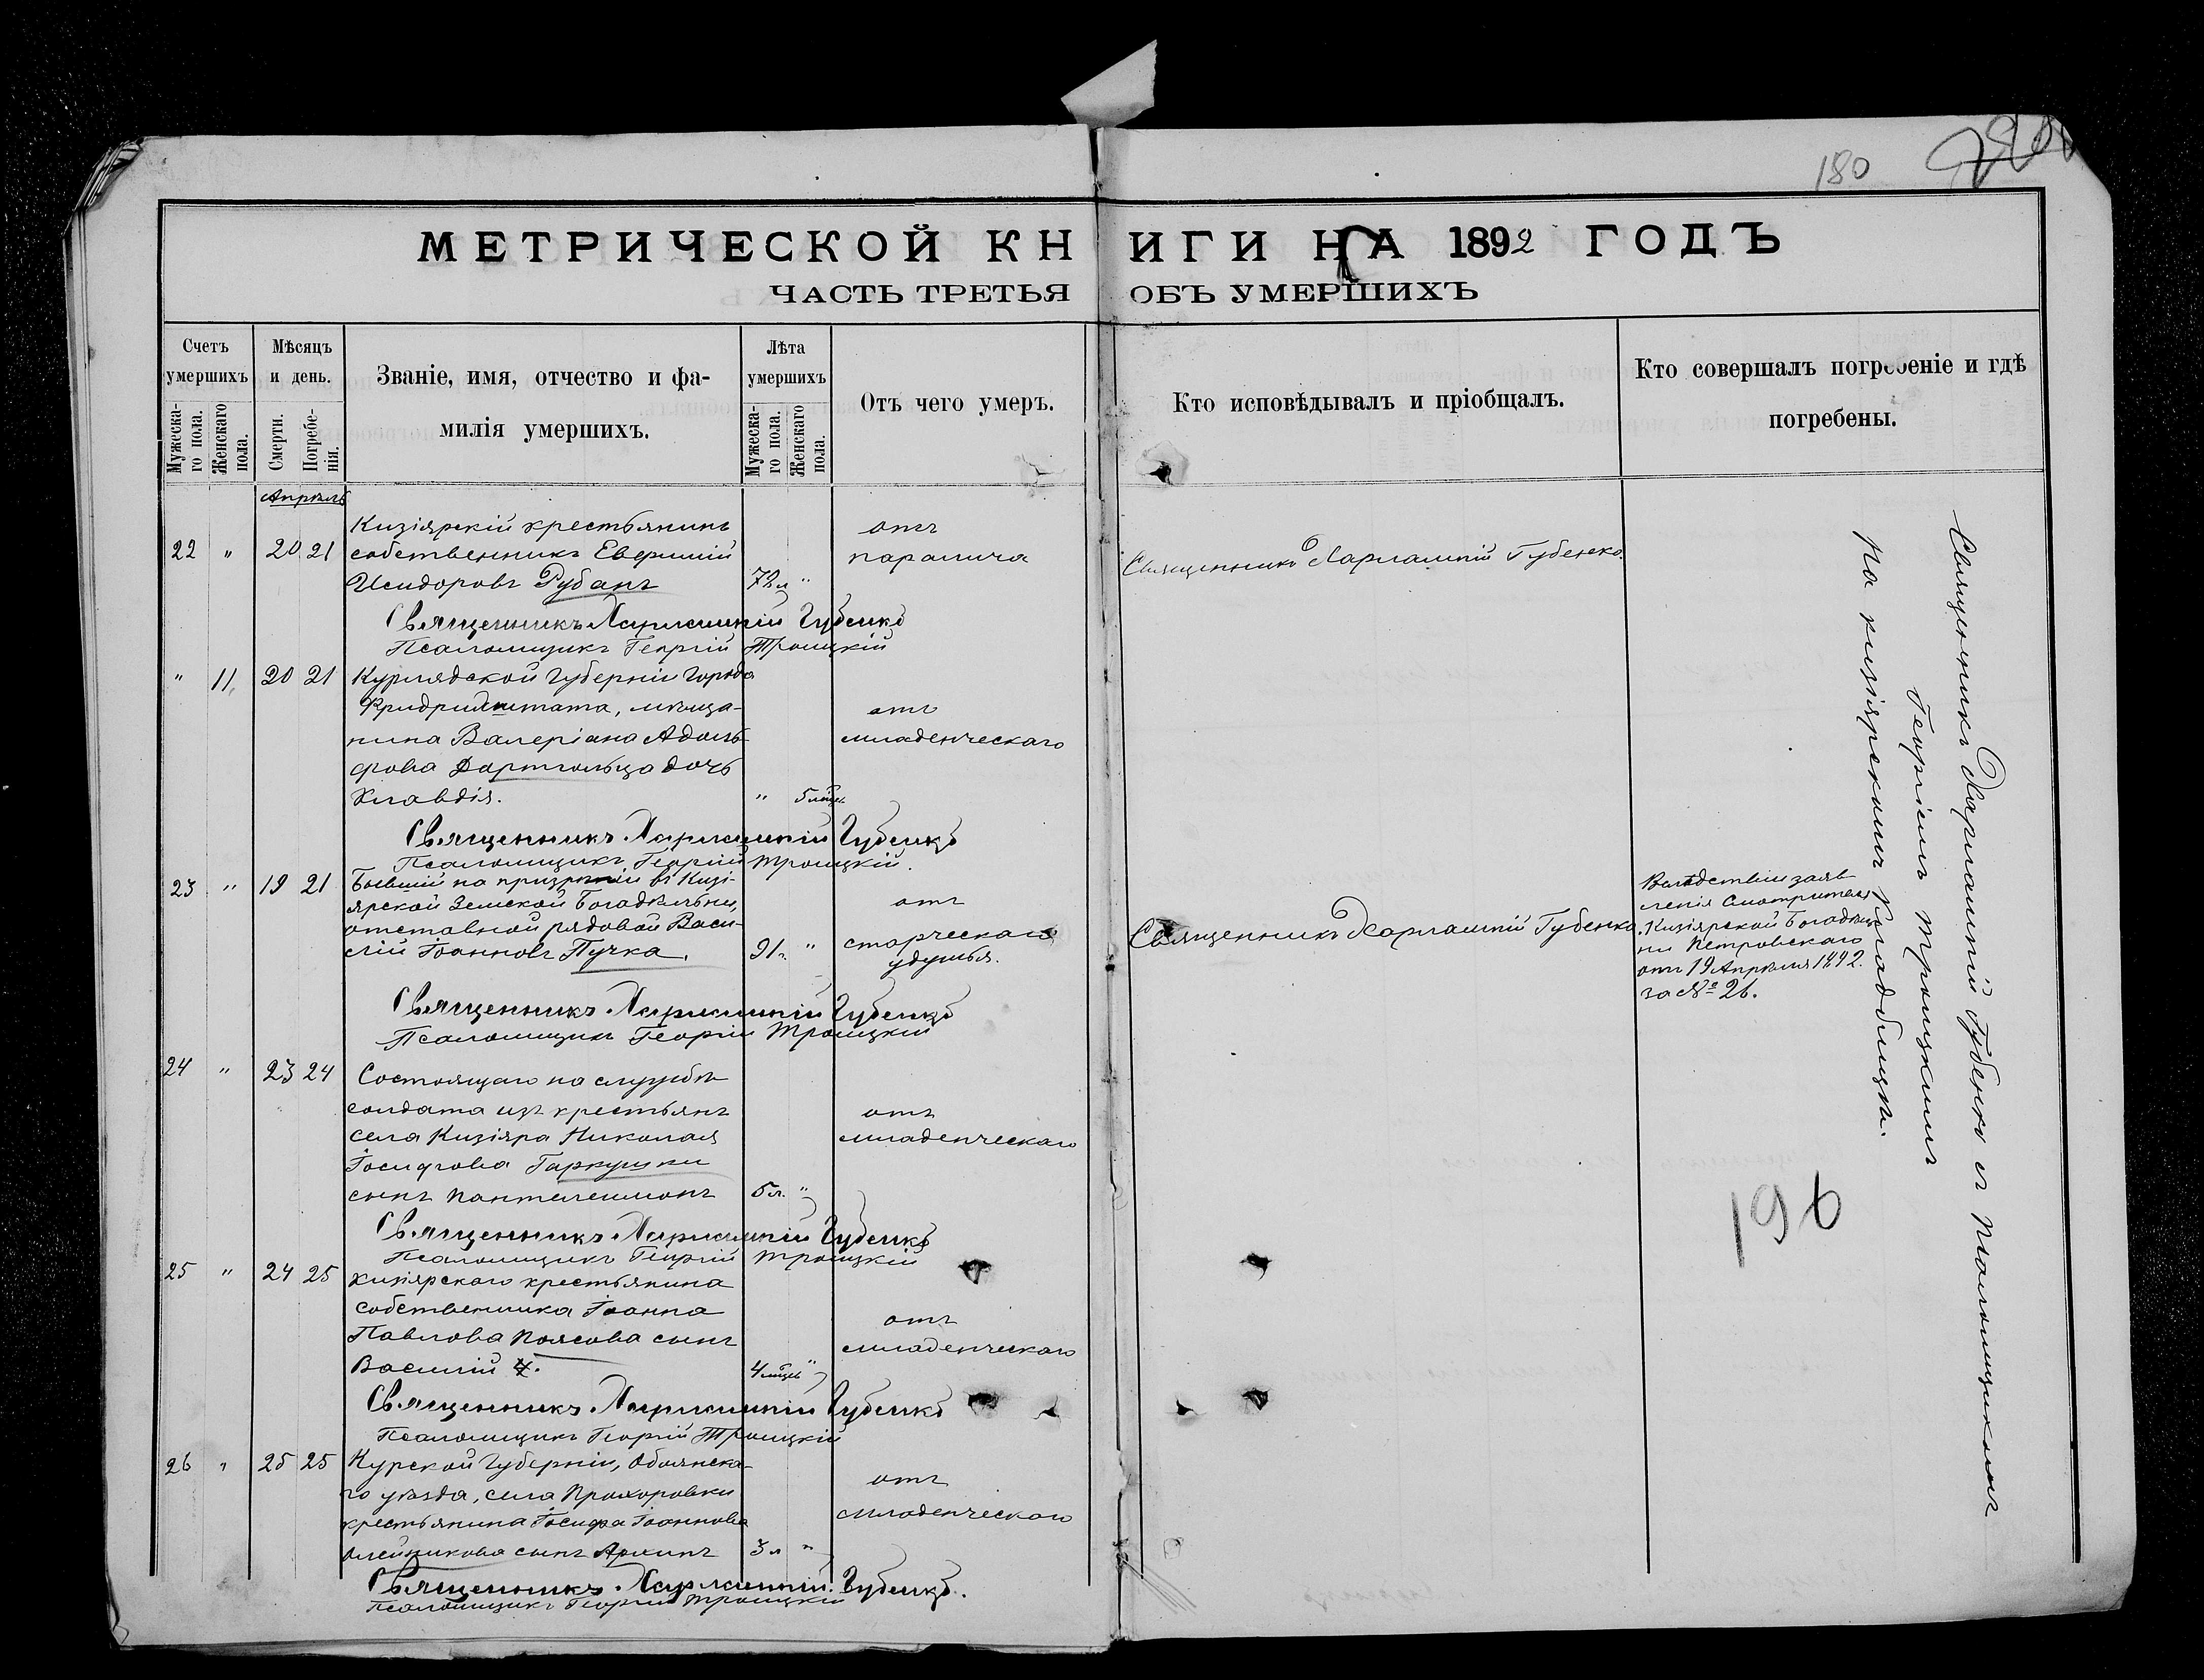 180
МЕТРИЧЕСКОЙ КНИГИ НА 1892 ГОДЪ
ЧАСТЬ ТРЕТЬЯ ОБЪ УМЕРШИХЪ
Счетъ умершихъ
Мужеска-
го пола.
Женскаго
пола.
Мѣсяцъ
и день.
Смерти.
Погребе-
нія.
Званіе, имя, отчество и фа-
милія умершихъ.
Лѣта
умершихъ
Мужеска-
го пола.
Женскаго
пола.
Отъ чего умеръ.
Кто исповѣдывалъ и пріобщалъ.
Кто совершалъ погребеніе и гдѣ
погребены.
Апрѣль
Кизіярскій крестьянинъ отъ
22 " 20 21 собственникъ Евфимій паралича Священникъ Харлампій Губенко.
Исидоровъ Рубанъ 72 л "
Священникъ Харлампій Губенко
Псаломщикъ Георгій Троицкій
" 11 20 21 Курляндской Губерніи города
Фридрихштата, мѣща- отъ
нина Валеріана Адоль- младенческаго
фова Дартгольца дочь
Клавдія. " 5 мѣс.
Священникъ Харлампій Губенко
Псаломщикъ Георгій Троицкій.
23 " 19 21 Бывшій на призрѣніи въ Кизі-
ярской Земской Богадѣльни, отъ
отставной рядовой Васи-
лій Іоанновъ Пучка. 91 г. " старческаго Священникъ Харлампій Губенко.
удушья.
Вслѣдствіи заяв-
ленія Смотрителя
Кизіярской Богадѣль-
ни Петровскаго
отъ 19 Апрѣля 1892.
за № 26.
Священникъ Харлампій Губенко
Псаломщикъ Георгій Троицкій
24 " 23 24 Состоящаго на службѣ
солдата изъ крестьянъ отъ
села Кизіяра Николая младенческаго
Іосифова Гаркушки
сынъ Пантелеимонъ 5 л. "
Священникъ Харлампій Губенко
Псаломщикъ Георгій Троицкій
25 " 24 25 кизіярскаго крестьянина
собственника Іоанна отъ
Павлова Поясова сынъ младенческаго
Василій 4 мѣс "
Священникъ Харлампій Губенко
Псаломщикъ Георгій Троицкій
26 " 25 25 Курской Губерніи, Обоянска-
го уѣзда, села Прохоровки отъ
крестьянина Іосифа Іоаннова младенческаго
Олейникова сынъ Архипъ 3 л "
Священникъ Харлампій Губенко.
Псаломщикъ Георгій Троицкій
Священникъ Харлампій Губенко съ Псаломщикомъ
Георгіемъ Троицкимъ
На кизіярскомъ кладбищѣ.
196